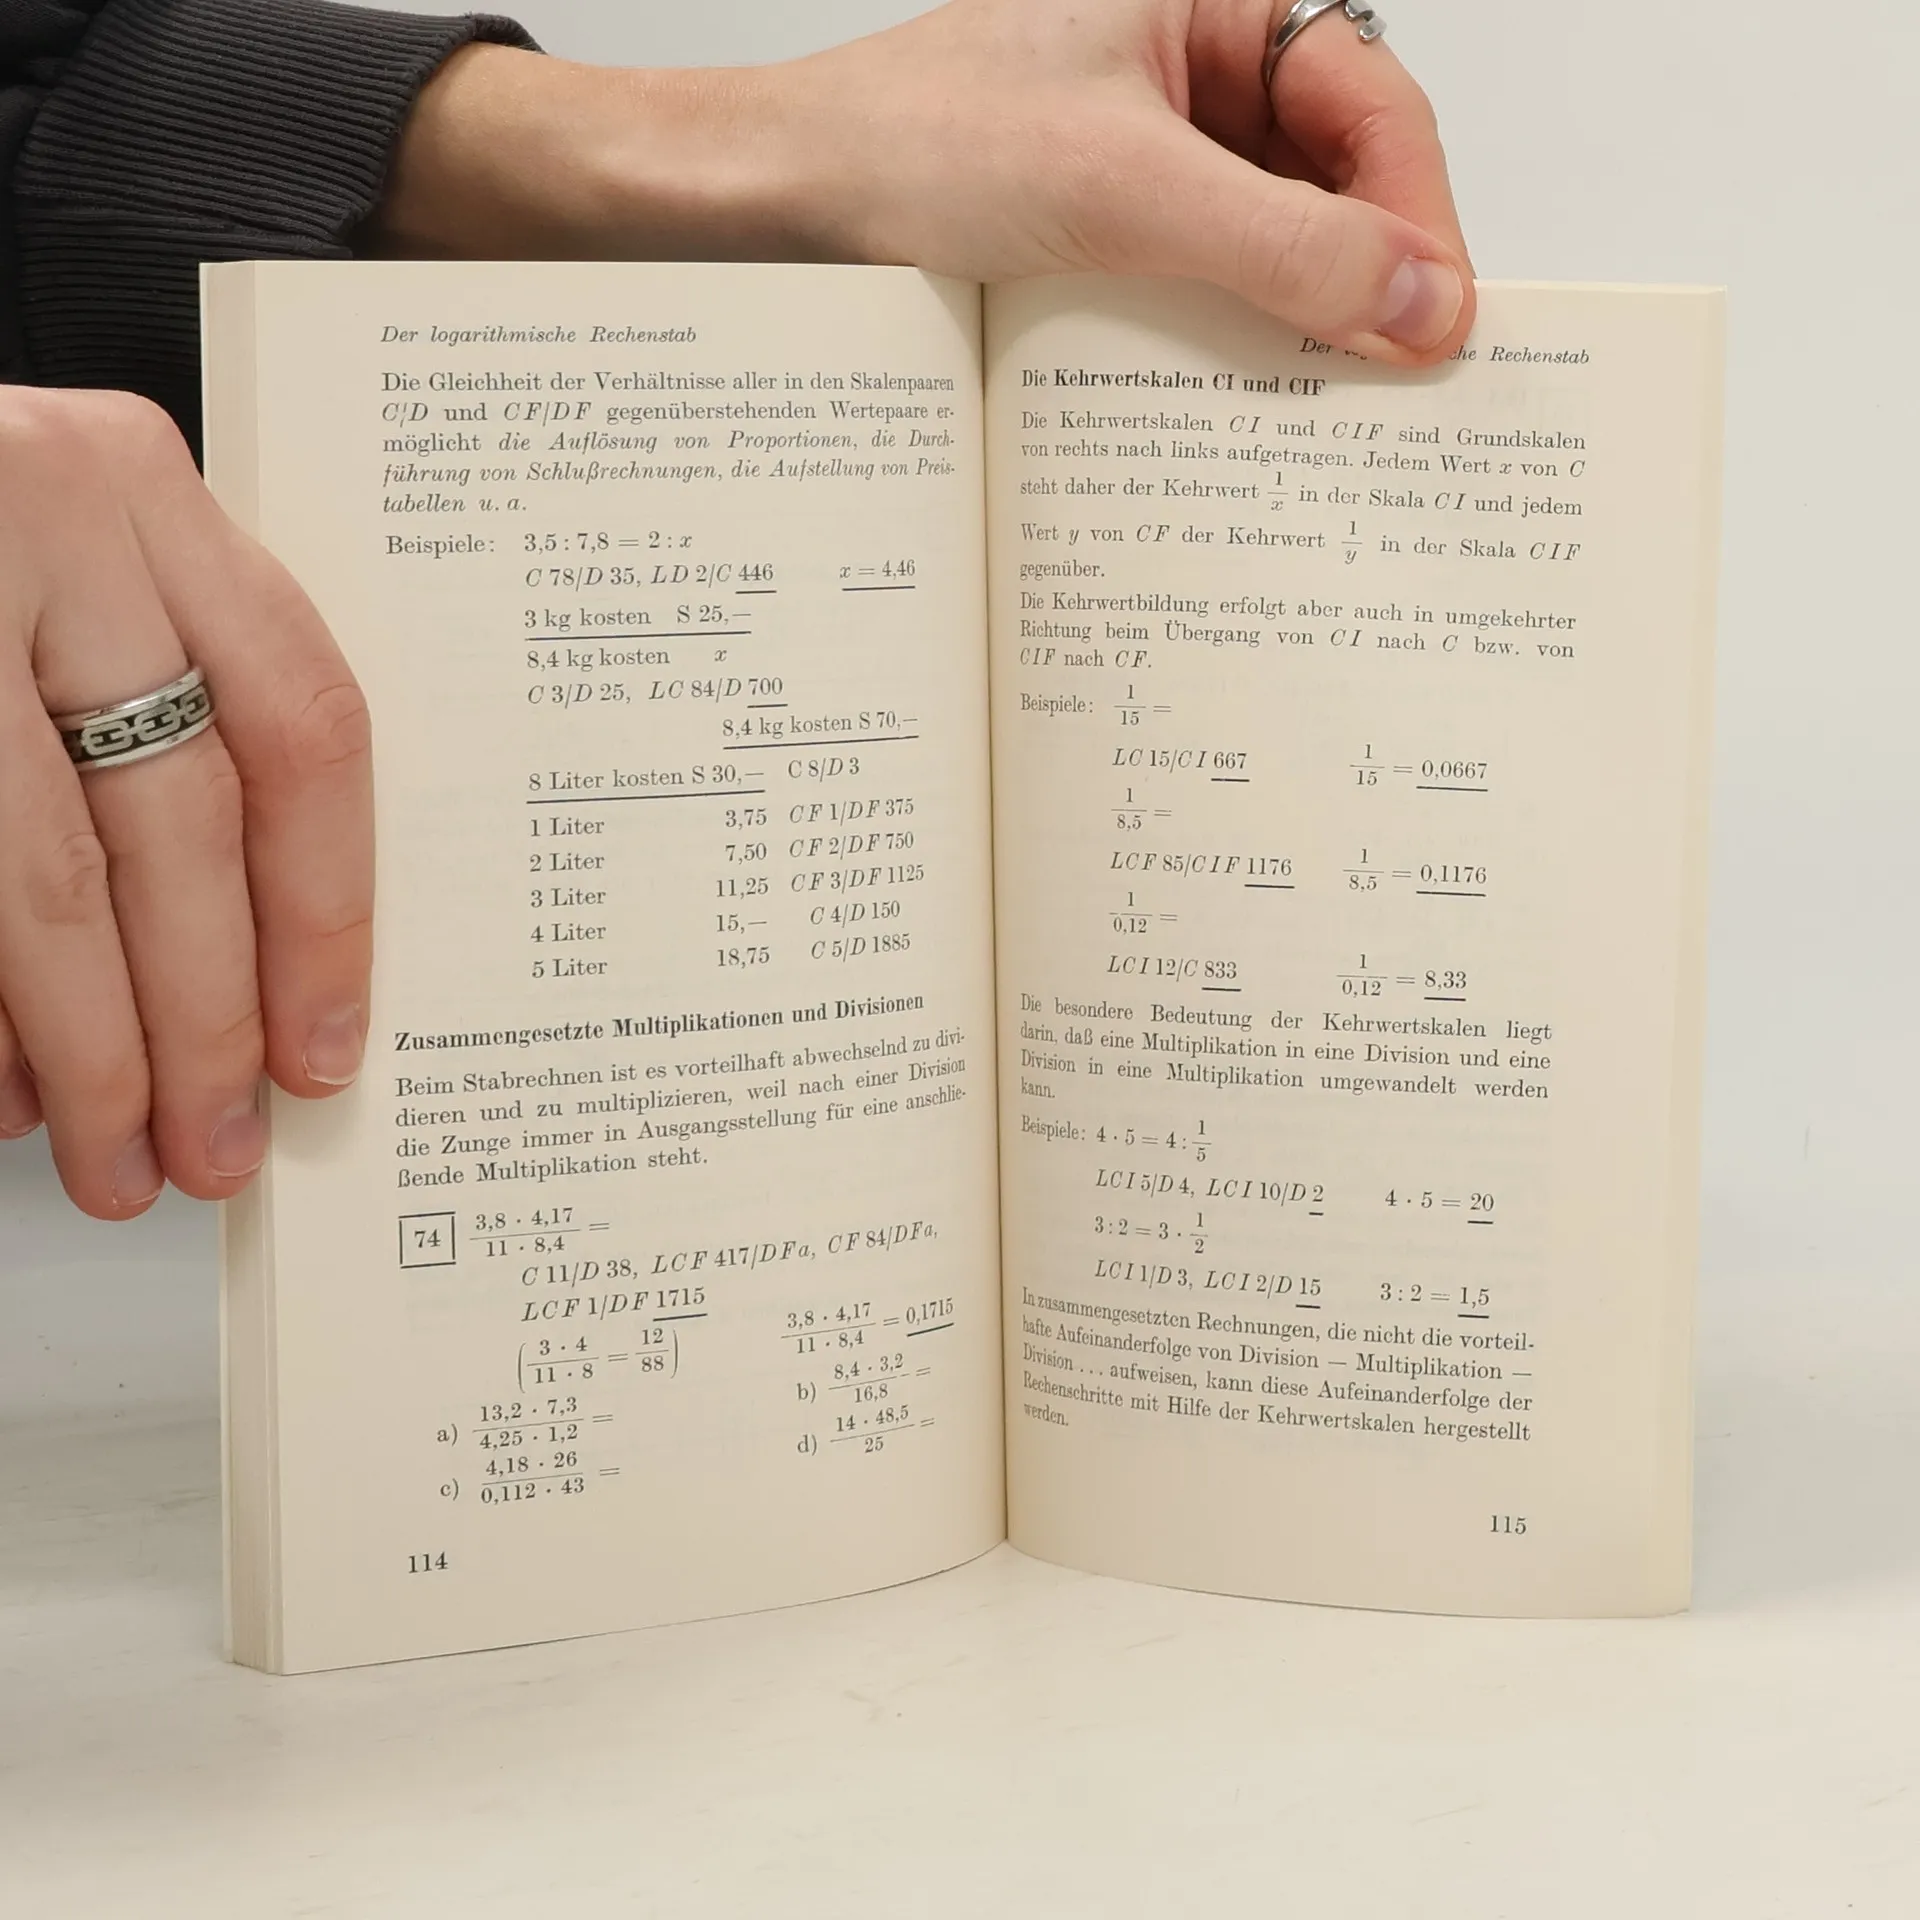 Der logarithmische Rechenstab
Die Gleichheit der Verhältnisse aller in den Skalenpaaren
C/D und CF/DF gegenüberstehenden Wertepaare er-
möglicht die Auflösung von Proportionen, die Durch-
führung von Schlußrechnungen, die Aufstellung von Preis-
tabellen u. a.
Beispiele: 3,5 : 7,8 = 2 : x
C 78/D 35, LD 2/C 446 x = 4,46
3 kg kosten S 25,—
8,4 kg kosten x
C 3/D 25, LC 84/D 700
8,4 kg kosten S 70,—
8 Liter kosten S 30,— C 8/D 3
1 Liter 3,75 CF 1/DF 375
2 Liter 7,50 CF 2/DF 750
3 Liter 11,25 CF 3/DF 1125
4 Liter 15,— C 4/D 150
5 Liter 18,75 C 5/D 1885
Zusammengesetzte Multiplikationen und Divisionen
Beim Stabrechnen ist es vorteilhaft abwechselnd zu divi-
dieren und zu multiplizieren, weil nach einer Division
die Zunge immer in Ausgangsstellung für eine anschlie-
ßende Multiplikation steht.
74 3,8 · 4,17 / 11 · 8,4 =
C 11/D 38, LCF 417/DFa, CF 84/DFa,
LCF 1/DF 1715
(3 · 4 / 11 · 8 = 12 / 88) 3,8 · 4,17 / 11 · 8,4 = 0,1715
a) 13,2 · 7,3 / 4,25 · 1,2 = b) 8,4 · 3,2 / 16,8 =
c) 4,18 · 26 / 0,112 · 43 = d) 14 · 48,5 / 25 =
114
Der che Rechenstab
Die Kehrwertskalen CI und CIF
Die Kehrwertskalen CI und CIF sind Grundskalen
von rechts nach links aufgetragen. Jedem Wert x von C
steht daher der Kehrwert 1/x in der Skala CI und jedem
Wert y von CF der Kehrwert 1/y in der Skala CIF
gegenüber.
Die Kehrwertbildung erfolgt aber auch in umgekehrter
Richtung beim Übergang von CI nach C bzw. von
CIF nach CF.
Beispiele: 1/15 =
LC 15/CI 667 1/15 = 0,0667
1/8,5 =
LCF 85/CIF 1176 1/8,5 = 0,1176
1/0,12 =
LCI 12/C 833 1/0,12 = 8,33
Die besondere Bedeutung der Kehrwertskalen liegt
darin, daß eine Multiplikation in eine Division und eine
Division in eine Multiplikation umgewandelt werden
kann.
Beispiele: 4 · 5 = 4 : 1/5
LCI 5/D 4, LCI 10/D 2 4 · 5 = 20
3 : 2 = 3 · 1/2
LCI 1/D 3, LCI 2/D 15 3 : 2 = 1,5
In zusammengesetzten Rechnungen, die nicht die vorteil-
hafte Aufeinanderfolge von Division — Multiplikation —
Division ... aufweisen, kann diese Aufeinanderfolge der
Rechenschritte mit Hilfe der Kehrwertskalen hergestellt
werden.
115